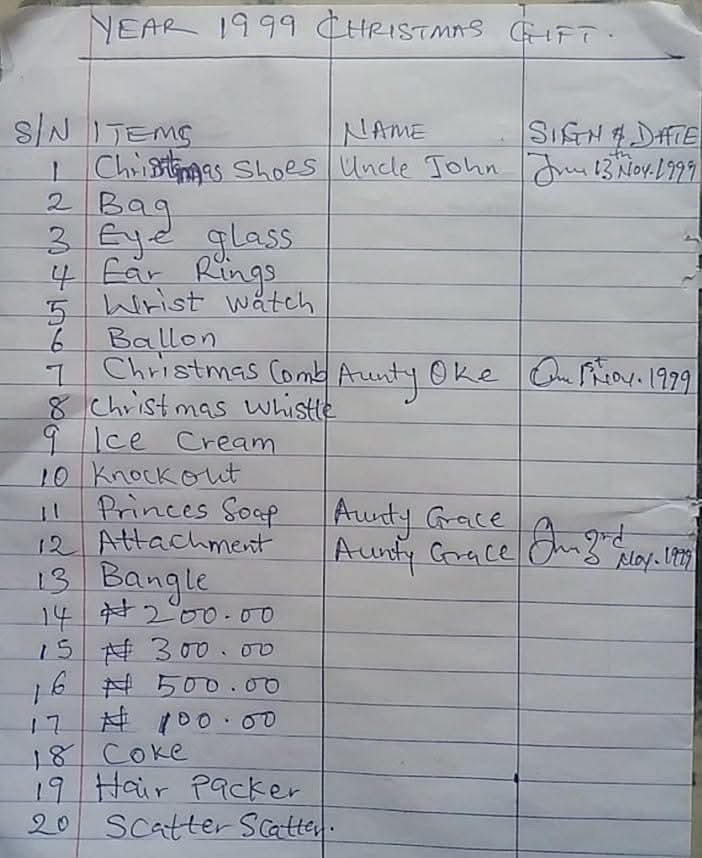 YEAR 1999 CHRISTMAS GIFT.
S/N ITEMS NAME SIGN & DATE
1 Christmas Shoes Uncle John 13th Nov. 1999
2 Bag
3 Eye glass
4 Ear Rings
5 Wrist Watch
6 Ballon
7 Christmas Comb Aunty Oke 1st Nov. 1999
8 Christmas Whistle
9 Ice Cream
10 Knockout
11 Princes Soap Aunty Grace
12 Attachment Aunty Grace 3rd Nov. 1999
13 Bangle
14 ₦200.00
15 ₦ 300.00
16 ₦ 500.00
17 ₦ 100.00
18 Coke
19 Hair Packer
20 Scatter Scatter.